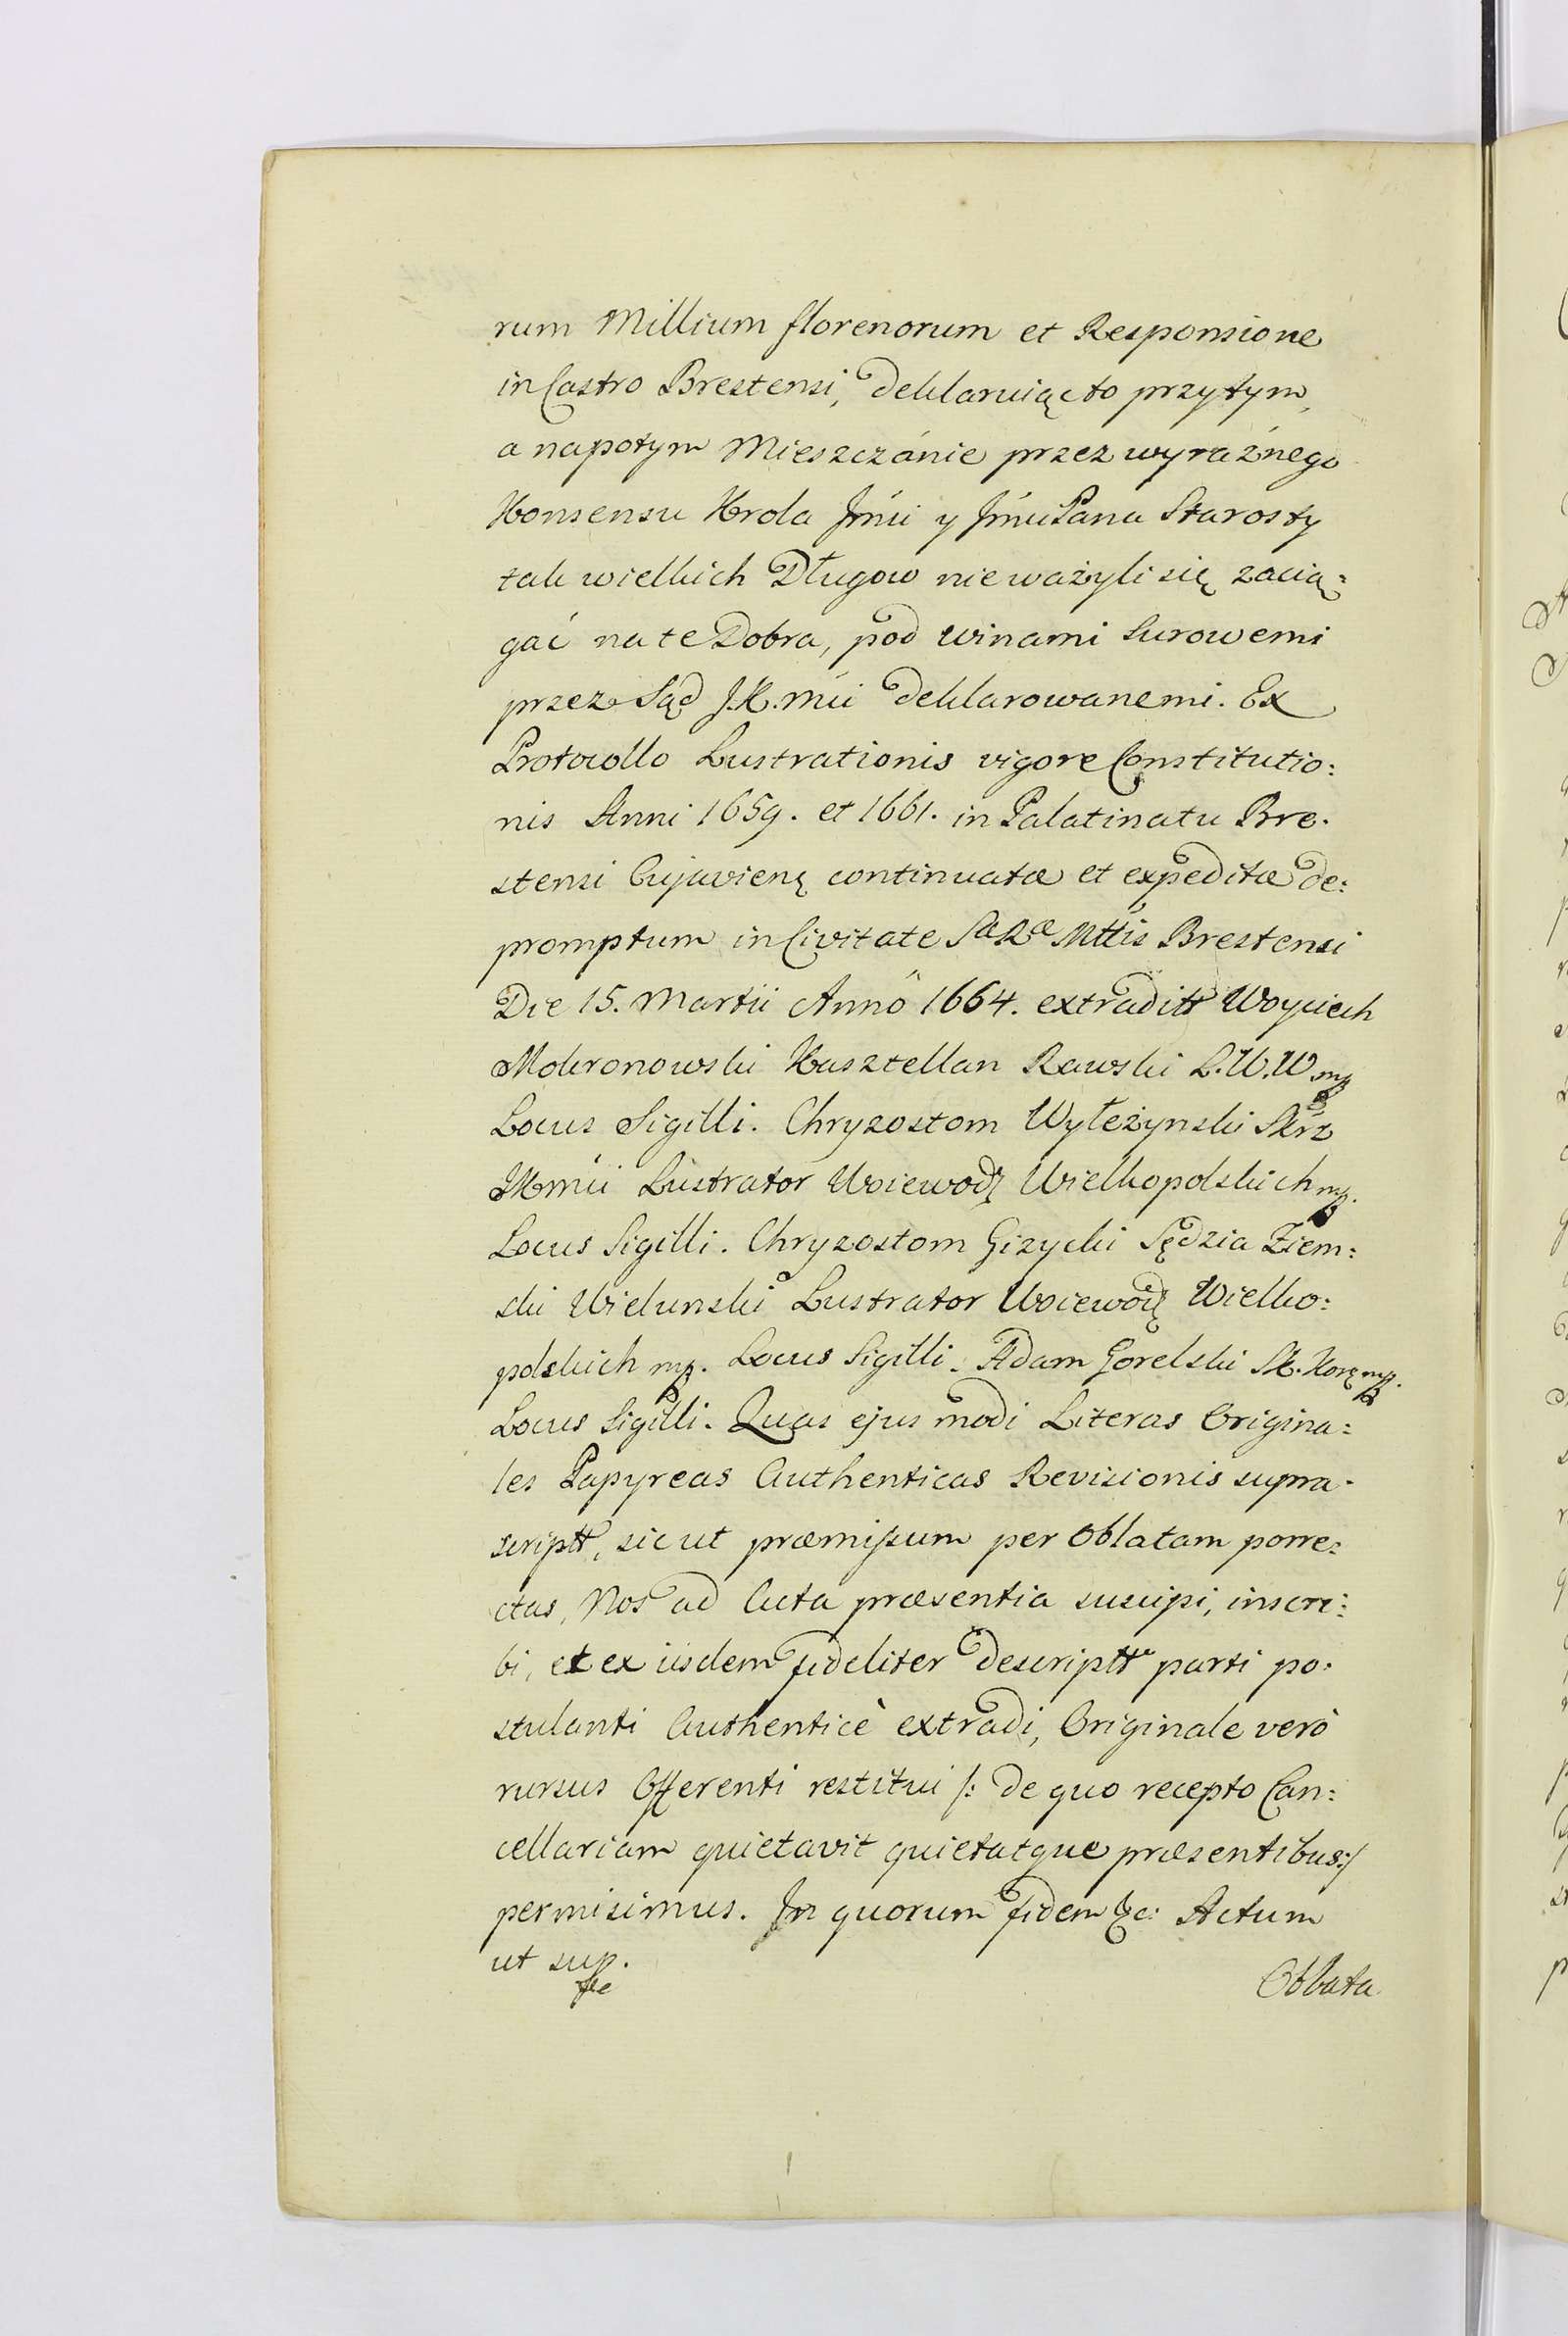 rum Millium florenorum et Responsione
in Castro Brestensi, deklaruiąc to przytym,
a napotym Mieszczánie przez wyraźnego
Konsensu Krola Jmci y Jmci Pana Starosty
tak wielkich Długow nieważyli się zacią:
gać na te Dobra, pod winami surowemi
przez Sąd J. K. Mci deklarowanemi. Ex
Protocollo Lustrationis vigore Constitutio:
nis Anni 1659. et 1661. in Palatinatu Bre.
stensi Cujavienę continuatæ et expeditæ de:
promptum in Civitate Sæ Ræ Mttis Brestensi
Die 15. Martii Annô 1664. extraditt Woyciech
Mokronowski Kasztellan Rawski L. W. W mp
Locus Sigilli. Chryzostom Wyłeżynski Skrz
JKmci Lustrator Woiewodz Wielkopolskich mp.
Locus Sigilli. Chryzostom Gizycki Sędzia Ziem:
ski Wielunski Lustrator Woiewodz Wielko:
polskich mp. Locus Sigilli. Adam Gorelski Sk. Korę mp.
Locus Sigilli. Quas ejus modi Literas Origina:
les Papyreas Authenticas Revisionis supra.
scriptt, sicut præmissum per Oblatam porre:
ctas, Nos ad Acta præsentia suscipi, inscri:
bi, et ex iisdem fideliter descriptt parti po:
stulanti Authenticè extradi, Originale verò
rursus Offerenti restitui /: de quo recepto Can:
cellariam quietavit quietatque præsentibus :/
permisimus. In quorum fidem &c: Actum
ut sup.
Oblata